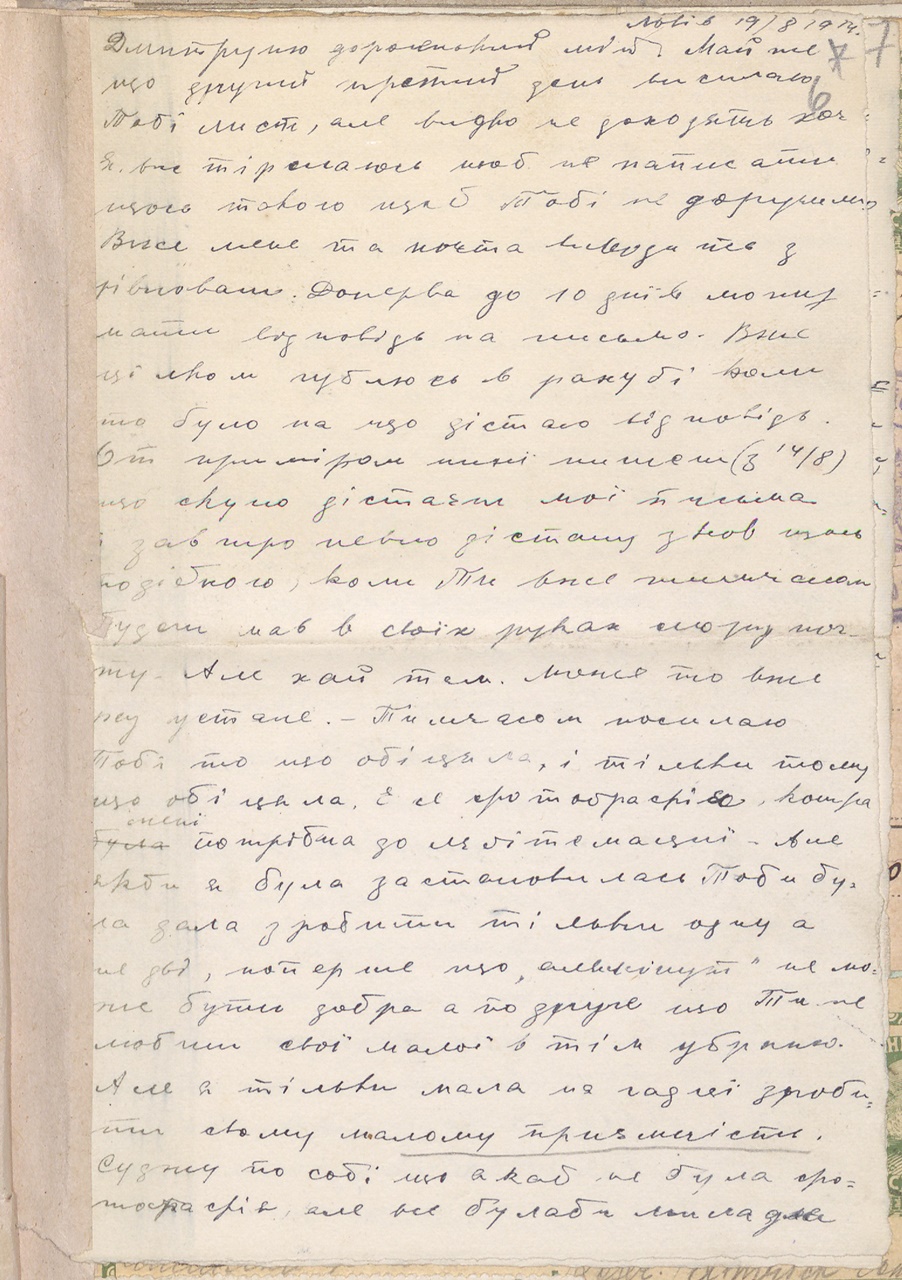 Львів 19/8 1914.
7
Дмитруню дорогенький мій! Майже
що другий третий день висилаю
6
Тобі лист, але видно не доходять хоч
я все стараюсь щоб не написати
щось такого щоб Тобі не доручили
Вже мене та почта виводить з
рівноваги. Доперва до 10 днів можу
мати відповідь на письмо. Вже
цілком гублюсь в рахубі коли
то було на що дістаю відповідь.
От приміром нині пишеш (з 14/8)
що скупо дістаєш мої письма
і завтро певно дістану знов щось
подібного, коли Ти вже тимчасом
будеш мав в своїх руках скору поч-
ту. Але хай там. Може то вже
раз устане. – Тимчасом посилаю
Тобі то що обіцяла, і тільки тому
що обіцяла. Є се фотографія, котра
мені
була потрібна до легітимації – Але
якби я була застановилась то би бу-
ла дала зробити тільки одну а
не дві, поперше що не мо-
же бути добра а по друге що Ти не
любиш свої малої в тім убранню.
Але я тільки мала на гадці зроби-
ти свому малому приємність.
Суджу по собі що яка б не була фо-
тографія, але все булаби мила для